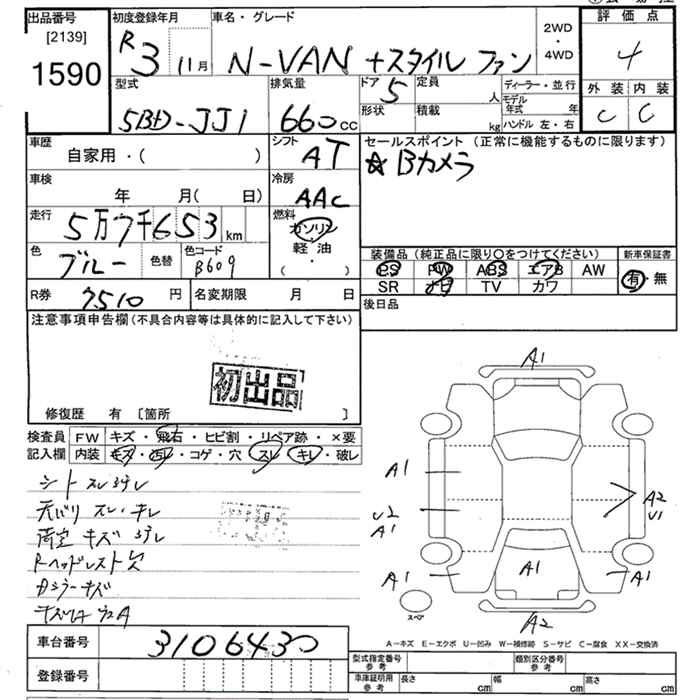 出品番号 初度登録年月 車名・グレード 評価点
[2139]
1590
R3 11月 N-VAN +スタイル ファン 2WD・4WD 4
型式 排気量 ドア 5 定員 人 ディーラー・並行 外装 内装
5BD-JJ1 660cc 形状 積載 kg モデル年式 年 C C
ハンドル 左・右
車歴 シフト セールスポイント (正常に機能するものに限ります)
自家用・( ) AT ☆Bカメラ
車検 冷房
年 月( 日) AAC
走行 燃料
5万7千653km ガソリン
軽・油
( ・ )
色 ブルー 色替 色コード B609
装備品 (純正品に限り○をつけてください) 新車保証書
PS PW ABS エアB AW 有・無
SR ナビ TV カワ
R券 7510円 名変期限 月 日 後日品
注意事項申告欄(不具合内容等は具体的に記入して下さい)
初出品
修復歴 有 [箇所 ]
検査員記入欄 FW キズ・飛石・ヒビ割・リペア跡・×要
内装 キズ・汚レ・コゲ・穴 スレ・キレ・破レ
シート スレ ヨゴレ
天バリ スレ・キレ
荷室 キズ ヨゴレ
Rヘッドレスト欠
A1
A1
U2
A1
A1
A2
U1
A1
A1
スペア
A2
A-キズ E-エクボ U-凹み W-補修跡 S-サビ C-腐食 XX-交換済
車台番号 3106430
登録番号
型式指定番号 参考 類別区分番号 参考
車庫証明用 参考 長さ cm 幅 cm 高さ cm